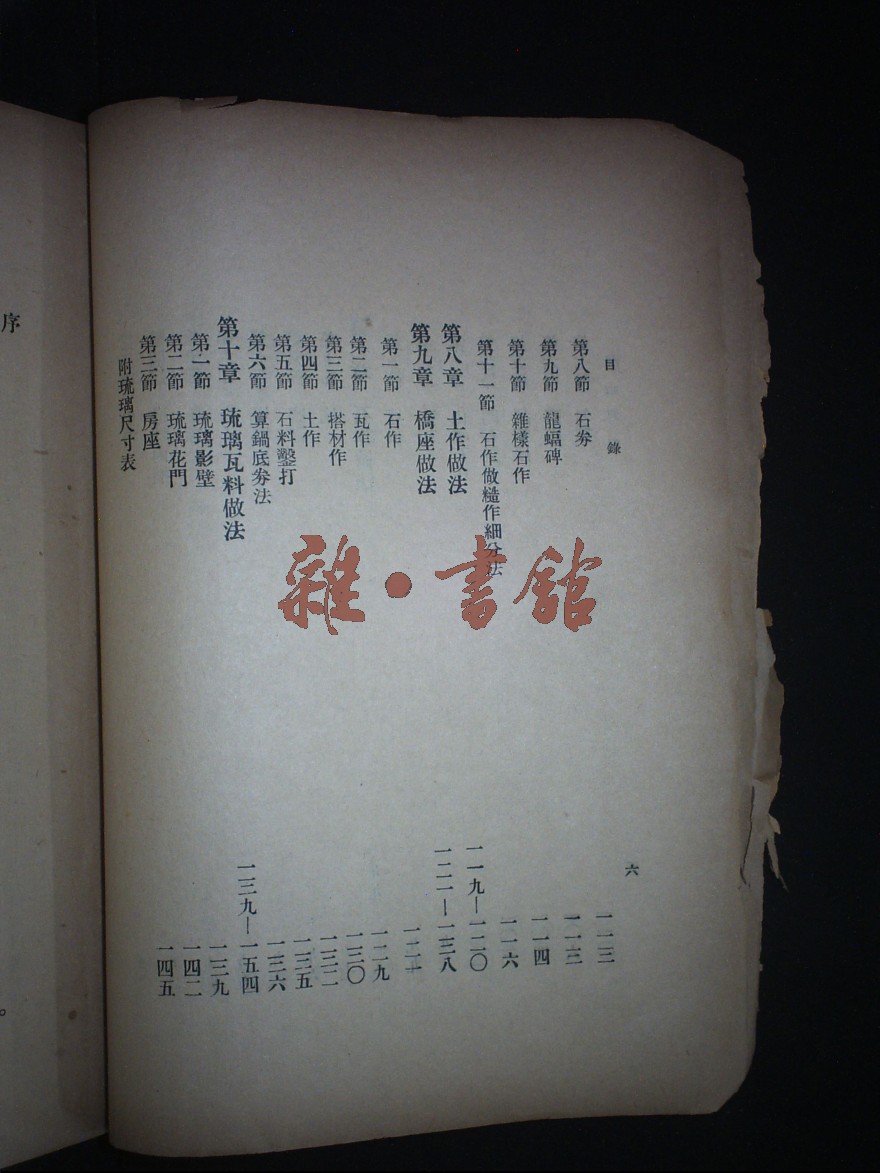 目錄 六
第八節 石券 一一三
第九節 龍蝠碑 一一三
第十節 雜樣石作 一一四
第十一節 石作做糙作細分法 一一六
第八章 土作做法 一一九—一二〇
第九章 橋座做法 一二一—一三八
第一節 石作 一二一
第二節 瓦作 一二九
第三節 搭材作 一三〇
第四節 土作 一三二
第五節 石料鑿打 一三五
第六節 算鍋底券法 一三六
第十章 琉璃瓦料做法 一三九—一五四
第一節 琉璃影壁 一三九
第二節 琉璃花門 一四二
第三節 房座 一四五
附琉璃尺寸表
序
。
雜·書館